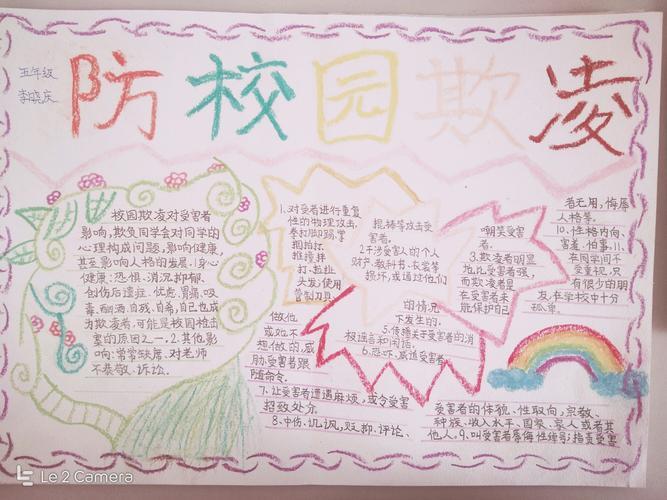 五年级
李晓庆
防校园欺凌
校园欺凌对受害者
影响,欺负同学会对同学的
心理构成问题,影响健康,
甚至影响人格的发展.1身心
健康:恐惧.消沉抑郁.
创伤后遗症.忧虑.胃痛.吸
毒.酗酒.自残.自杀,自己也成
为欺凌者,可能是校园枪击
案的原因之一.2.其他影
响:常常缺席.对老师
不恭敬.诉讼.
1.对受害者进行重复
性的物理攻击,
拳打脚踢.掌
掴拍打.
推撞绊
打.拉扯
头发;使用
管制刀具.
棍棒等攻击受
害者.
2干涉受害人的个人
财产.教科书.衣裳等
损坏,或通过他们
嘲笑受害
者.
3.欺凌者明显
比受害者强,
而欺凌者是
在受害者未
能保护自己
的情况
下发生的.
5.传播关于受害者的消
极谣言和闲话.
6.恐吓.威迫受害者
做他
或她不
想做的,威
胁受害者跟
随命令.
7.让受害者遭遇麻烦,或令受害
招致处分.
8.中伤.讥讽.贬抑.评论.
受害者的体貌.性取向.宗教.
种族.收入水平.国籍.家人或者其
他人.9.叫受害者侮辱性绰号;指责受害
者无用,侮辱
人格等.
10.性格内向.
害羞.怕事.11.
在同学间不
受重视,只
有很少的朋
友,在学校中十分
孤单.
Le 2 Camera